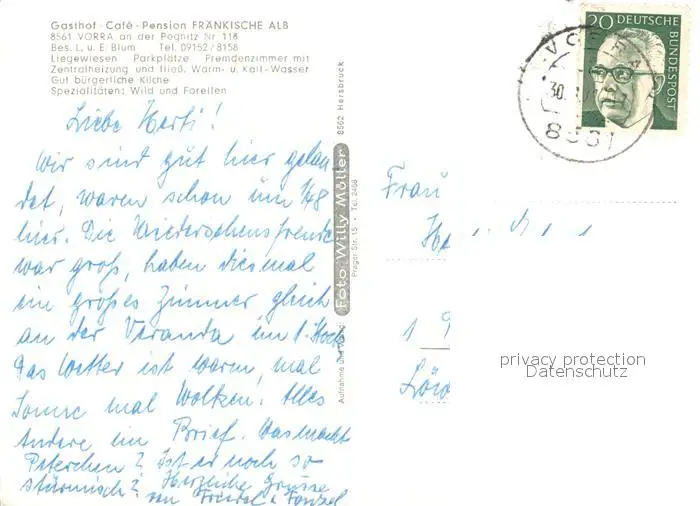 Gasthof - Café - Pension FRÄNKISCHE ALB
8561 VORRA an der Pegnitz Nr. 118
Bes. L. u. E. Blum Tel. 09152/8158
Liegewiesen Parkplätze Fremdenzimmer mit
Zentralheizung und fließ. Warm- u. Kalt-Wasser
Gut bürgerliche Küche
Spezialitäten: Wild und Forellen
Liebe Herti!
Wir sind gut hier gelan
det, waren schon um 1/48
hier. Die Wiedersehensfreude
war groß, haben diesmal
ein großes Zimmer gleich
an der Veranda im 1. Stock
Das Wetter ist warm, mal
Sonne mal Wolken. Alles
Andere im Brief. Was macht
Peterchen? Ist er noch so
stürmisch? Herzliche Grüsse
von
Aufnahme und Verlag:
Foto Willy Müller
8562 Hersbruck
Prager Str. 15 • Tel. 2408
20 DEUTSCHE
BUNDESPOST
30.
8561
Frau
1
privacy protection
Datenschutz